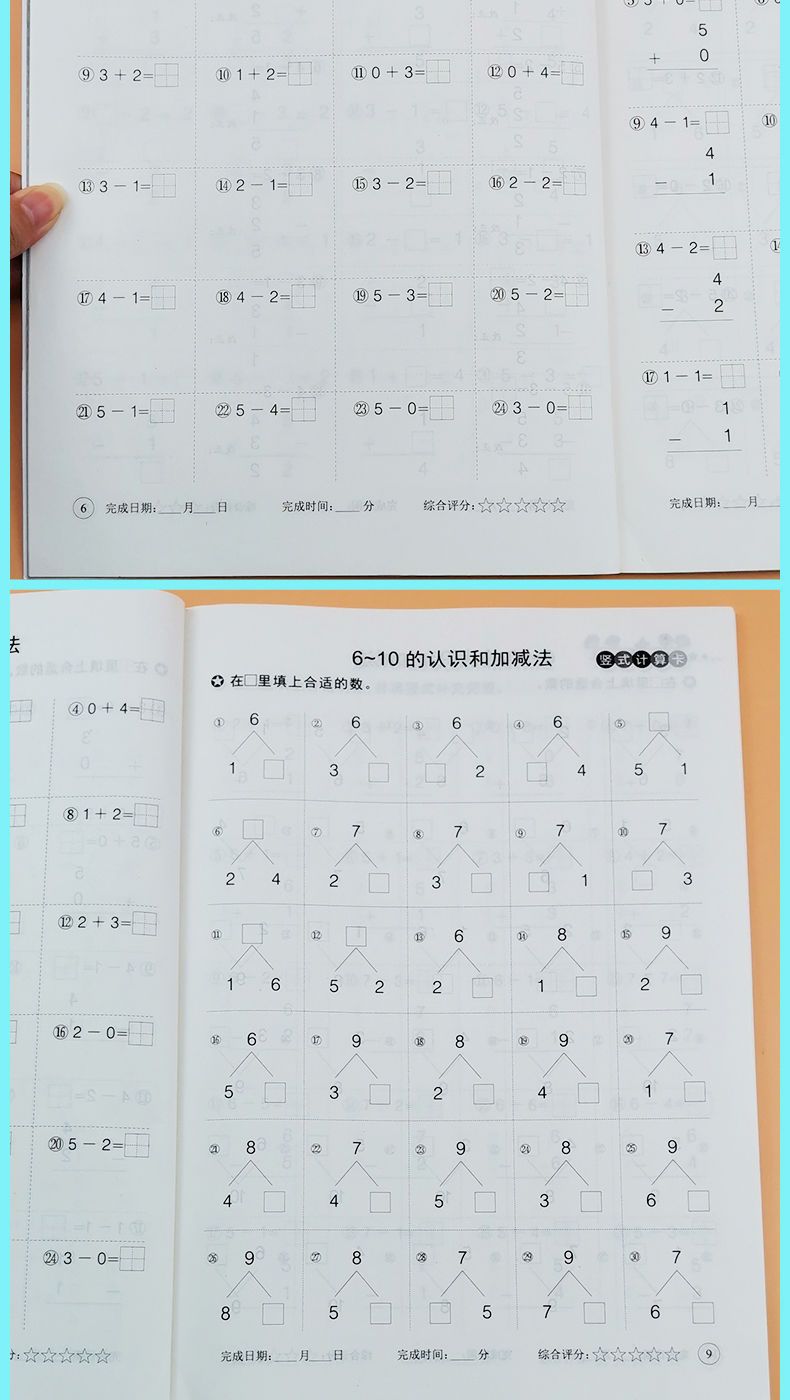 ⑨ 3+2= ⑩ 1+2= ⑪ 0+3= ⑫ 0+4=
⑬ 3-1= ⑭ 2-1= ⑮ 3-2= ⑯ 2-2=
⑰ 4-1= ⑱ 4-2= ⑲ 5-3= ⑳ 5-2=
㉑ 5-1= ㉒ 5-4= ㉓ 5-0= ㉔ 3-0=
6 完成日期:___月___日 完成时间:___分 综合评分:☆☆☆☆☆
5
+ 0
⑨ 4-1= ⑩
4
- 1
⑬ 4-2=
4
- 2
⑰ 1-1=
1
- 1
完成日期:___月
法
④ 0+4=
⑧ 1+2=
⑫ 2+3=
⑯ 2-0=
⑳ 5-2=
㉔ 3-0=
☆☆☆☆☆
6~10 的认识和加减法 竖式计算卡
✪ 在□里填上合适的数。
① 6 ② 6 ③ 6 ④ 6 ⑤ □
1 □ 3 □ □ 2 □ 4 5 1
⑥ □ ⑦ 7 ⑧ 7 ⑨ 7 ⑩ 7
2 4 2 □ 3 □ □ 1 □ 3
⑪ □ ⑫ □ ⑬ 6 ⑭ 8 ⑮ 9
1 6 5 2 2 □ 1 □ 2 □
⑯ 6 ⑰ 9 ⑱ 8 ⑲ 9 ⑳ 7
5 □ 3 □ 2 □ 4 □ 1 □
㉑ 8 ㉒ 7 ㉓ 9 ㉔ 8 ㉕ 9
4 □ 4 □ 5 □ 3 □ 6 □
㉖ 9 ㉗ 8 ㉘ 7 ㉙ 9 ㉚ 7
8 □ 5 □ □ 5 7 □ 6 □
完成日期:___月___日 完成时间:___分 综合评分:☆☆☆☆☆ 9